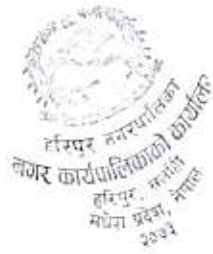 हरिपुर नगरपालिका
नगर कार्यपालिकाको कार्यालय
हरिपुर, सर्लाही
मधेश प्रदेश, नेपाल
२०७३